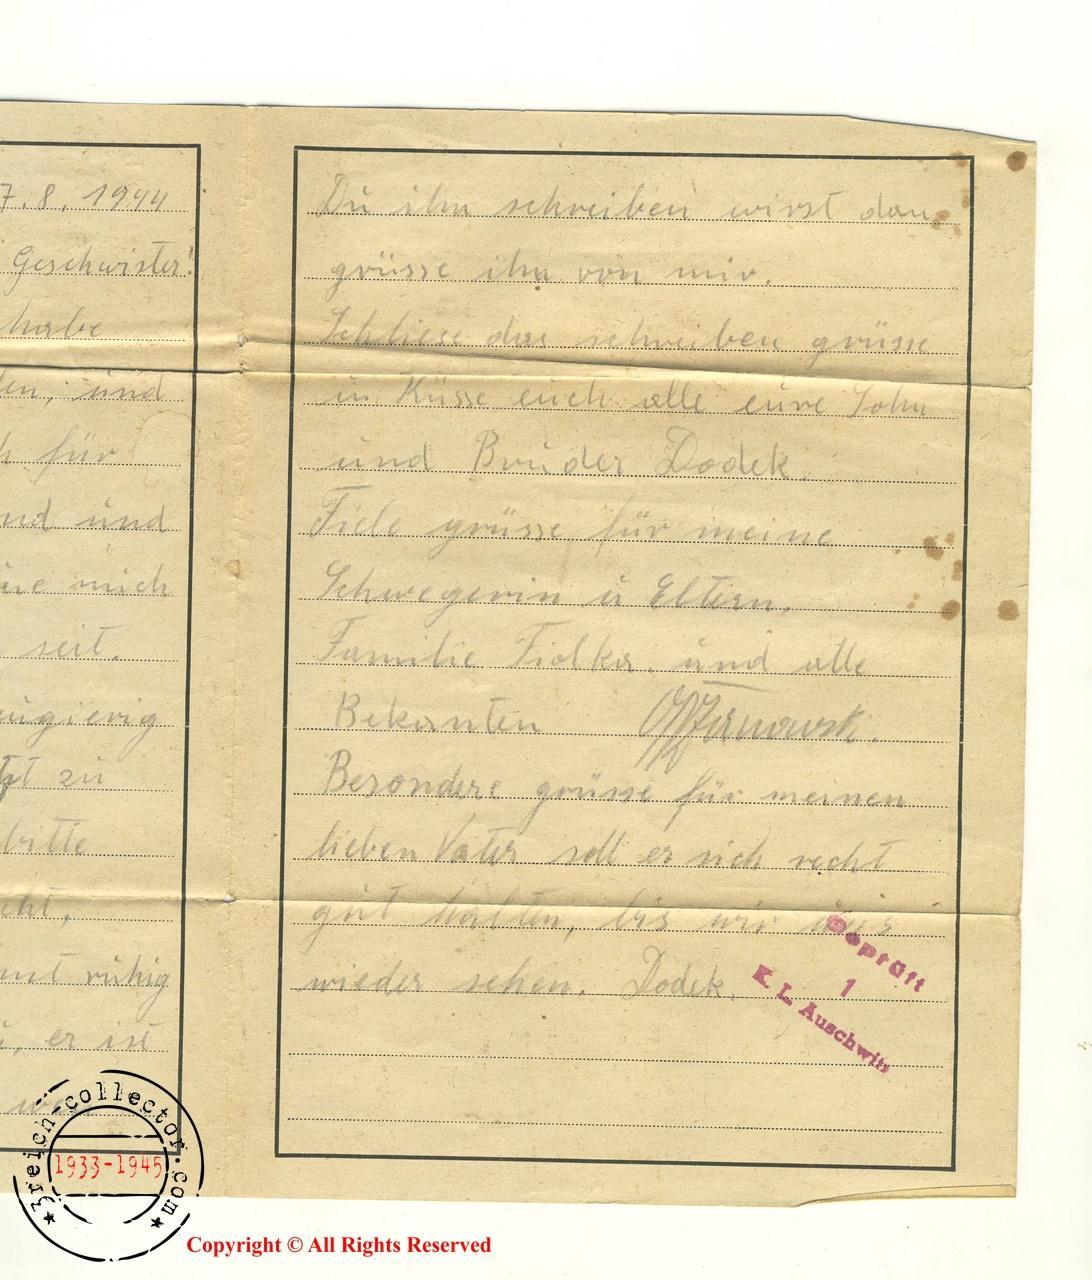 7.8.1944
Geschwister!
habe
und
für
und
mich
seit.
zu
bitte
ruhig
er ist
Du ihn schreiben wirst dan
grüsse ihn von mir.
Schliese das schreiben grüsse
u Küsse euch alle eure Sohn
und Bruder Dodek.
Fiele grüsse für meine
Schwegerin u Eltern.
Familie Fiolka. und alle
Bekanten
Besondere grüsse für meinen
lieben Vater soll er sich recht
gut halten, bis wir uns
wieder sehen. Dodek.
Geprüft
1
K. L. Auschwitz
3reich-collector.com
1933-1945
Copyright © All Rights Reserved